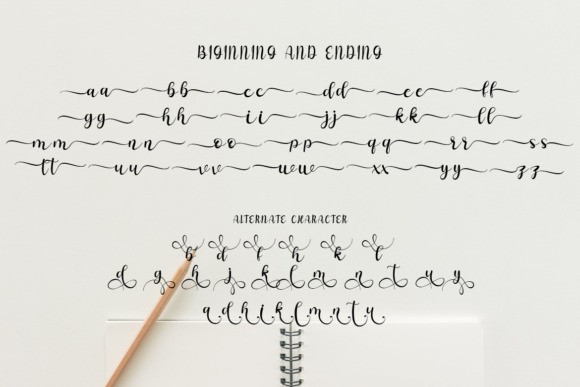 BIGINNING AND ENDING
aa bb cc dd ee ff
gg hh ii jj kk ll
mm nn oo pp qq rr ss
tt uu vv ww xx yy zz
ALTERNATE CHARACTER
b d f h k l
d g h j k l m n t u y
a d h i k l m n t u